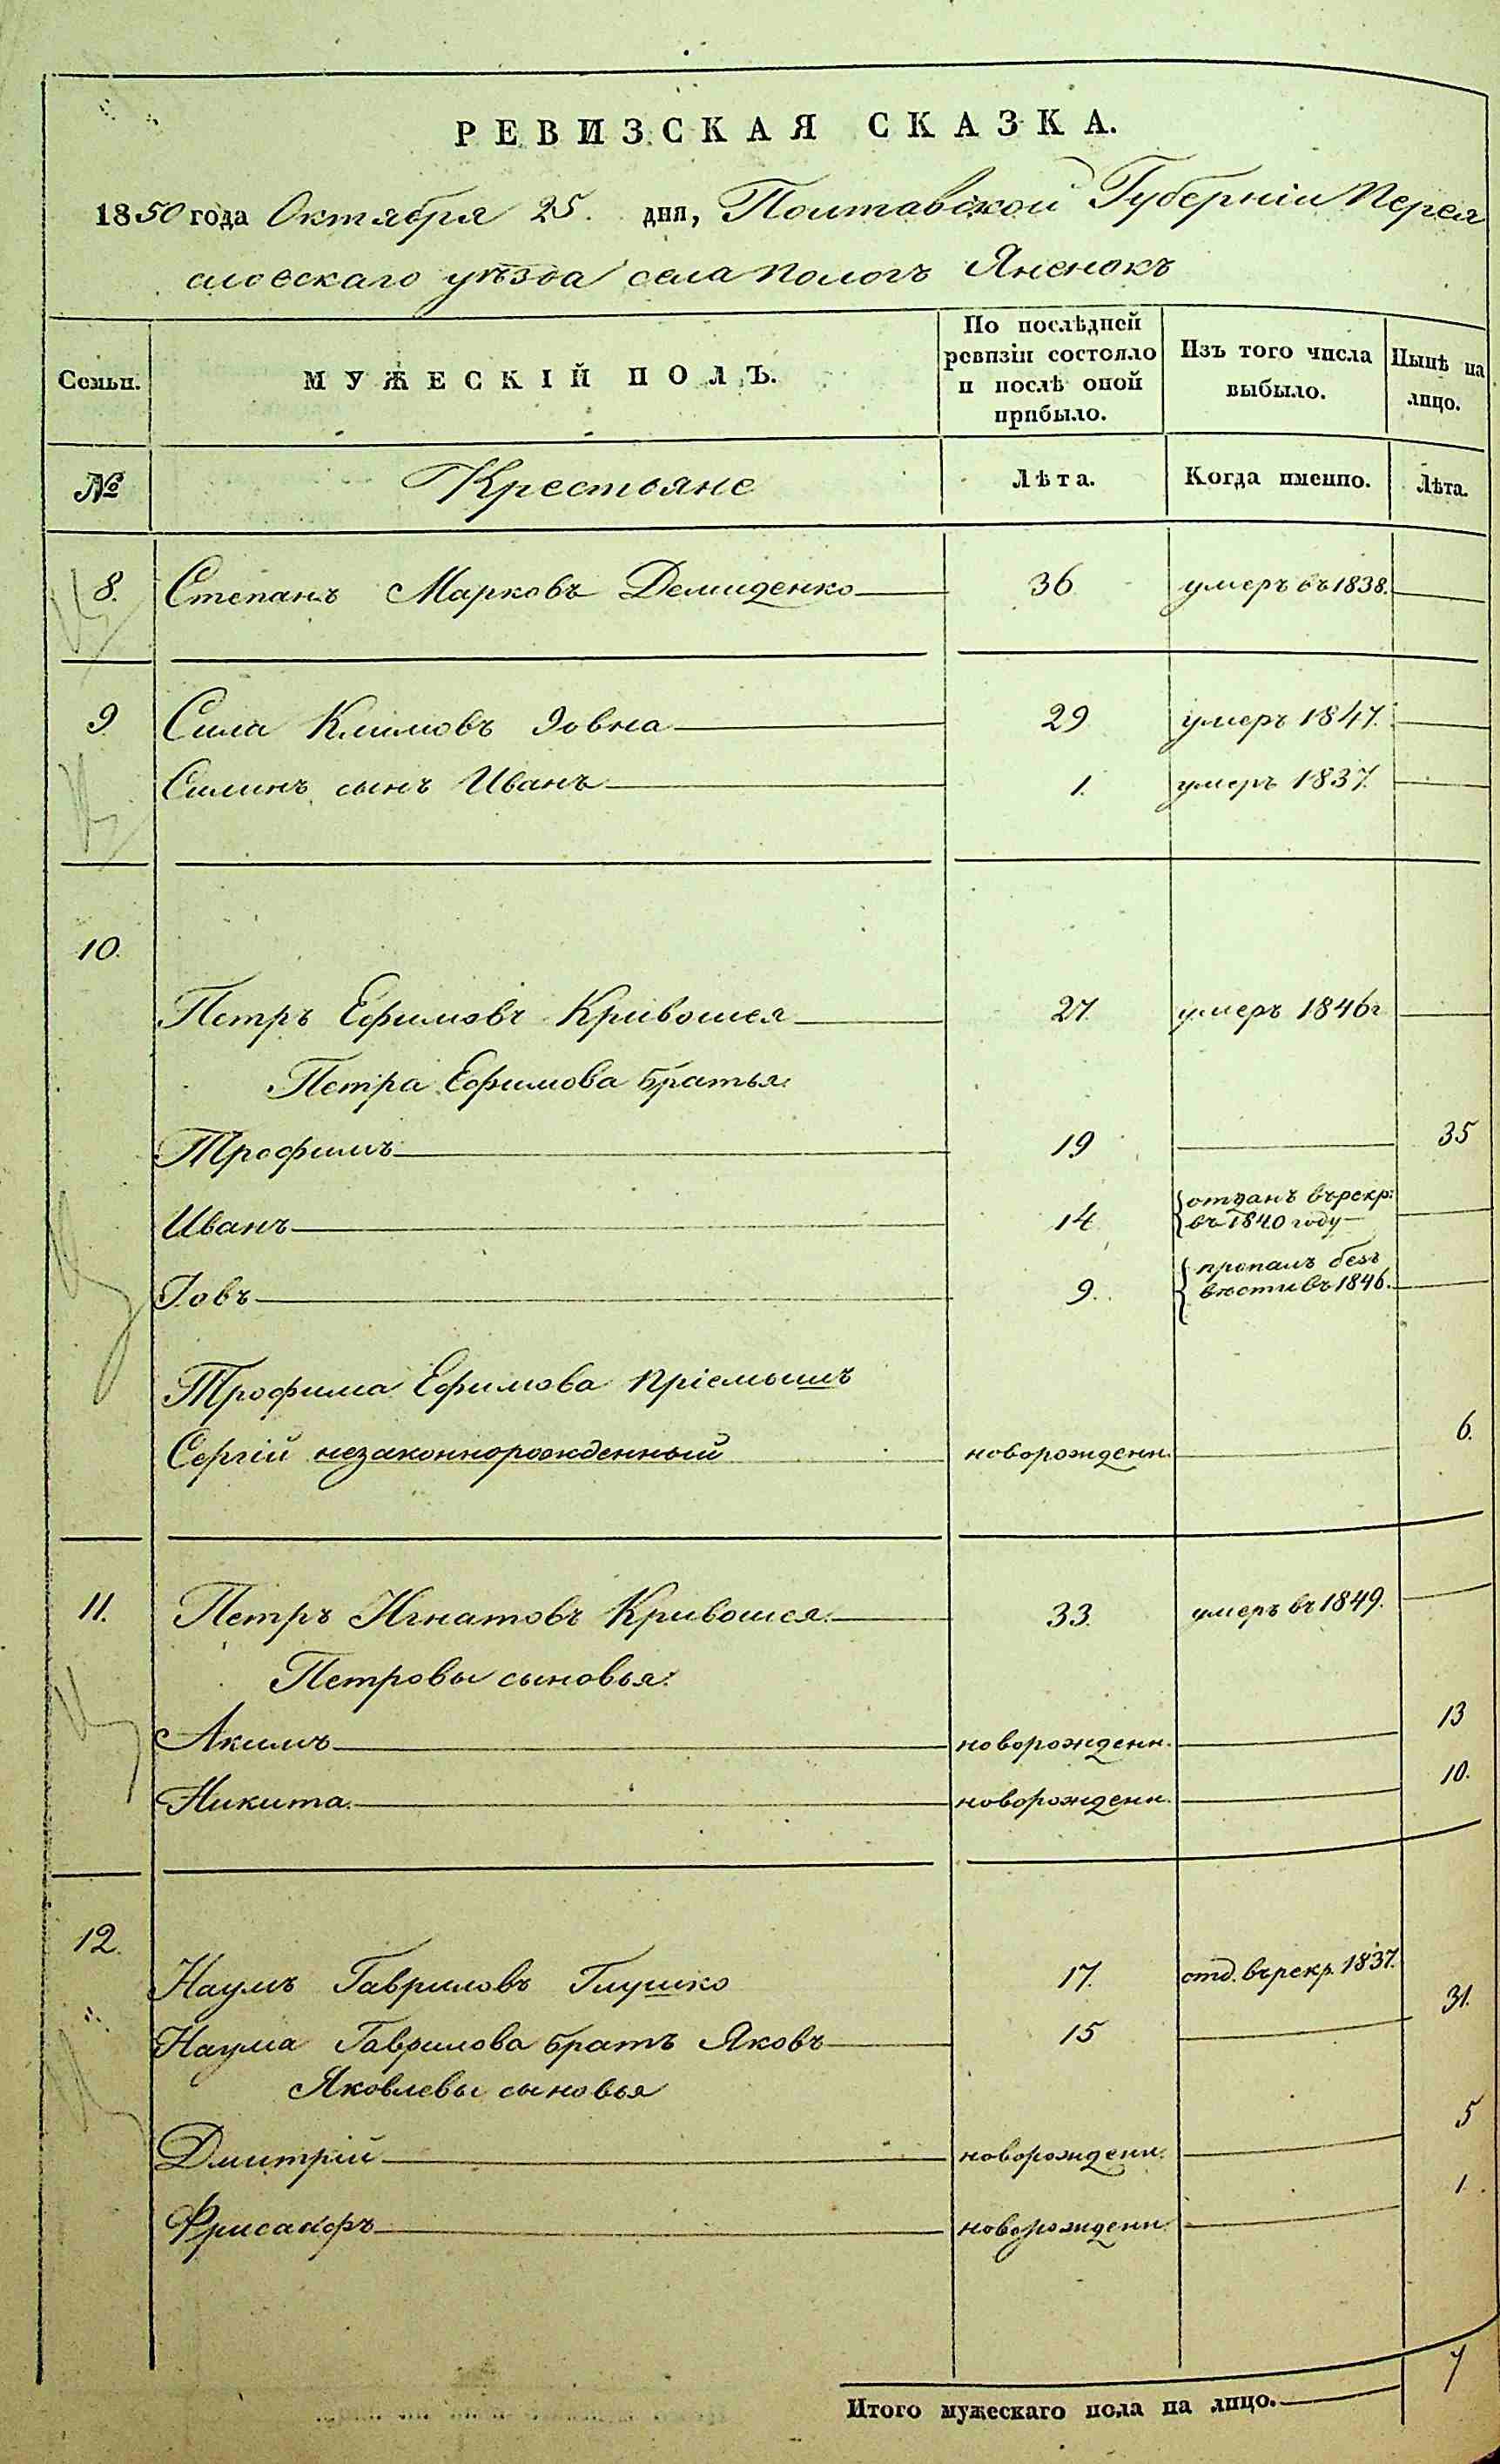 РЕВИЗСКАЯ СКАЗКА.
1850 года Октября 25. дня, Полтавской Губерніи Перея
словскаго уѣзда села Пологъ Яненокъ
Семьи.
МУЖЕСКІЙ ПОЛЪ.
По послѣдней
ревизіи состояло
и послѣ оной
прибыло.
Изъ того числа
выбыло.
Нынѣ на
лицо.
№
Крестьяне
Лѣта.
Когда именно.
Лѣта.
8. Степанъ Марковъ Демиденко 36 умеръ въ 1838.
9 Сила Климовъ Зовна 29 умеръ 1847.
Силинъ сынъ Иванъ 1. умеръ 1837.
10.
Петръ Ефимовъ Кривошея 27. умеръ 1846 г
Петра Ефимова братья
Трофимъ 19 35
Иванъ 14 отданъ въ рекр:
въ 1840 году
Іовъ 9. пропалъ безъ
вѣсти въ 1846.
Трофима Ефимова пріемышъ
Сергій незаконнорожденный новорожденн. 6.
11. Петръ Игнатовъ Кривошея. 33. умеръ въ 1849.
Петровы сыновья:
Акимъ новорожденн. 13
Никита новорожденн. 10.
12.
Наумъ Гавриловъ Глушко 17. отд. въ рекр. 1837.
Наума Гаврилова братъ Яковъ 15 31.
Яковлевы сыновья
Дмитрій новорожденн. 5
новорожденн. 1.
Итого мужескаго пола на лицо. 7